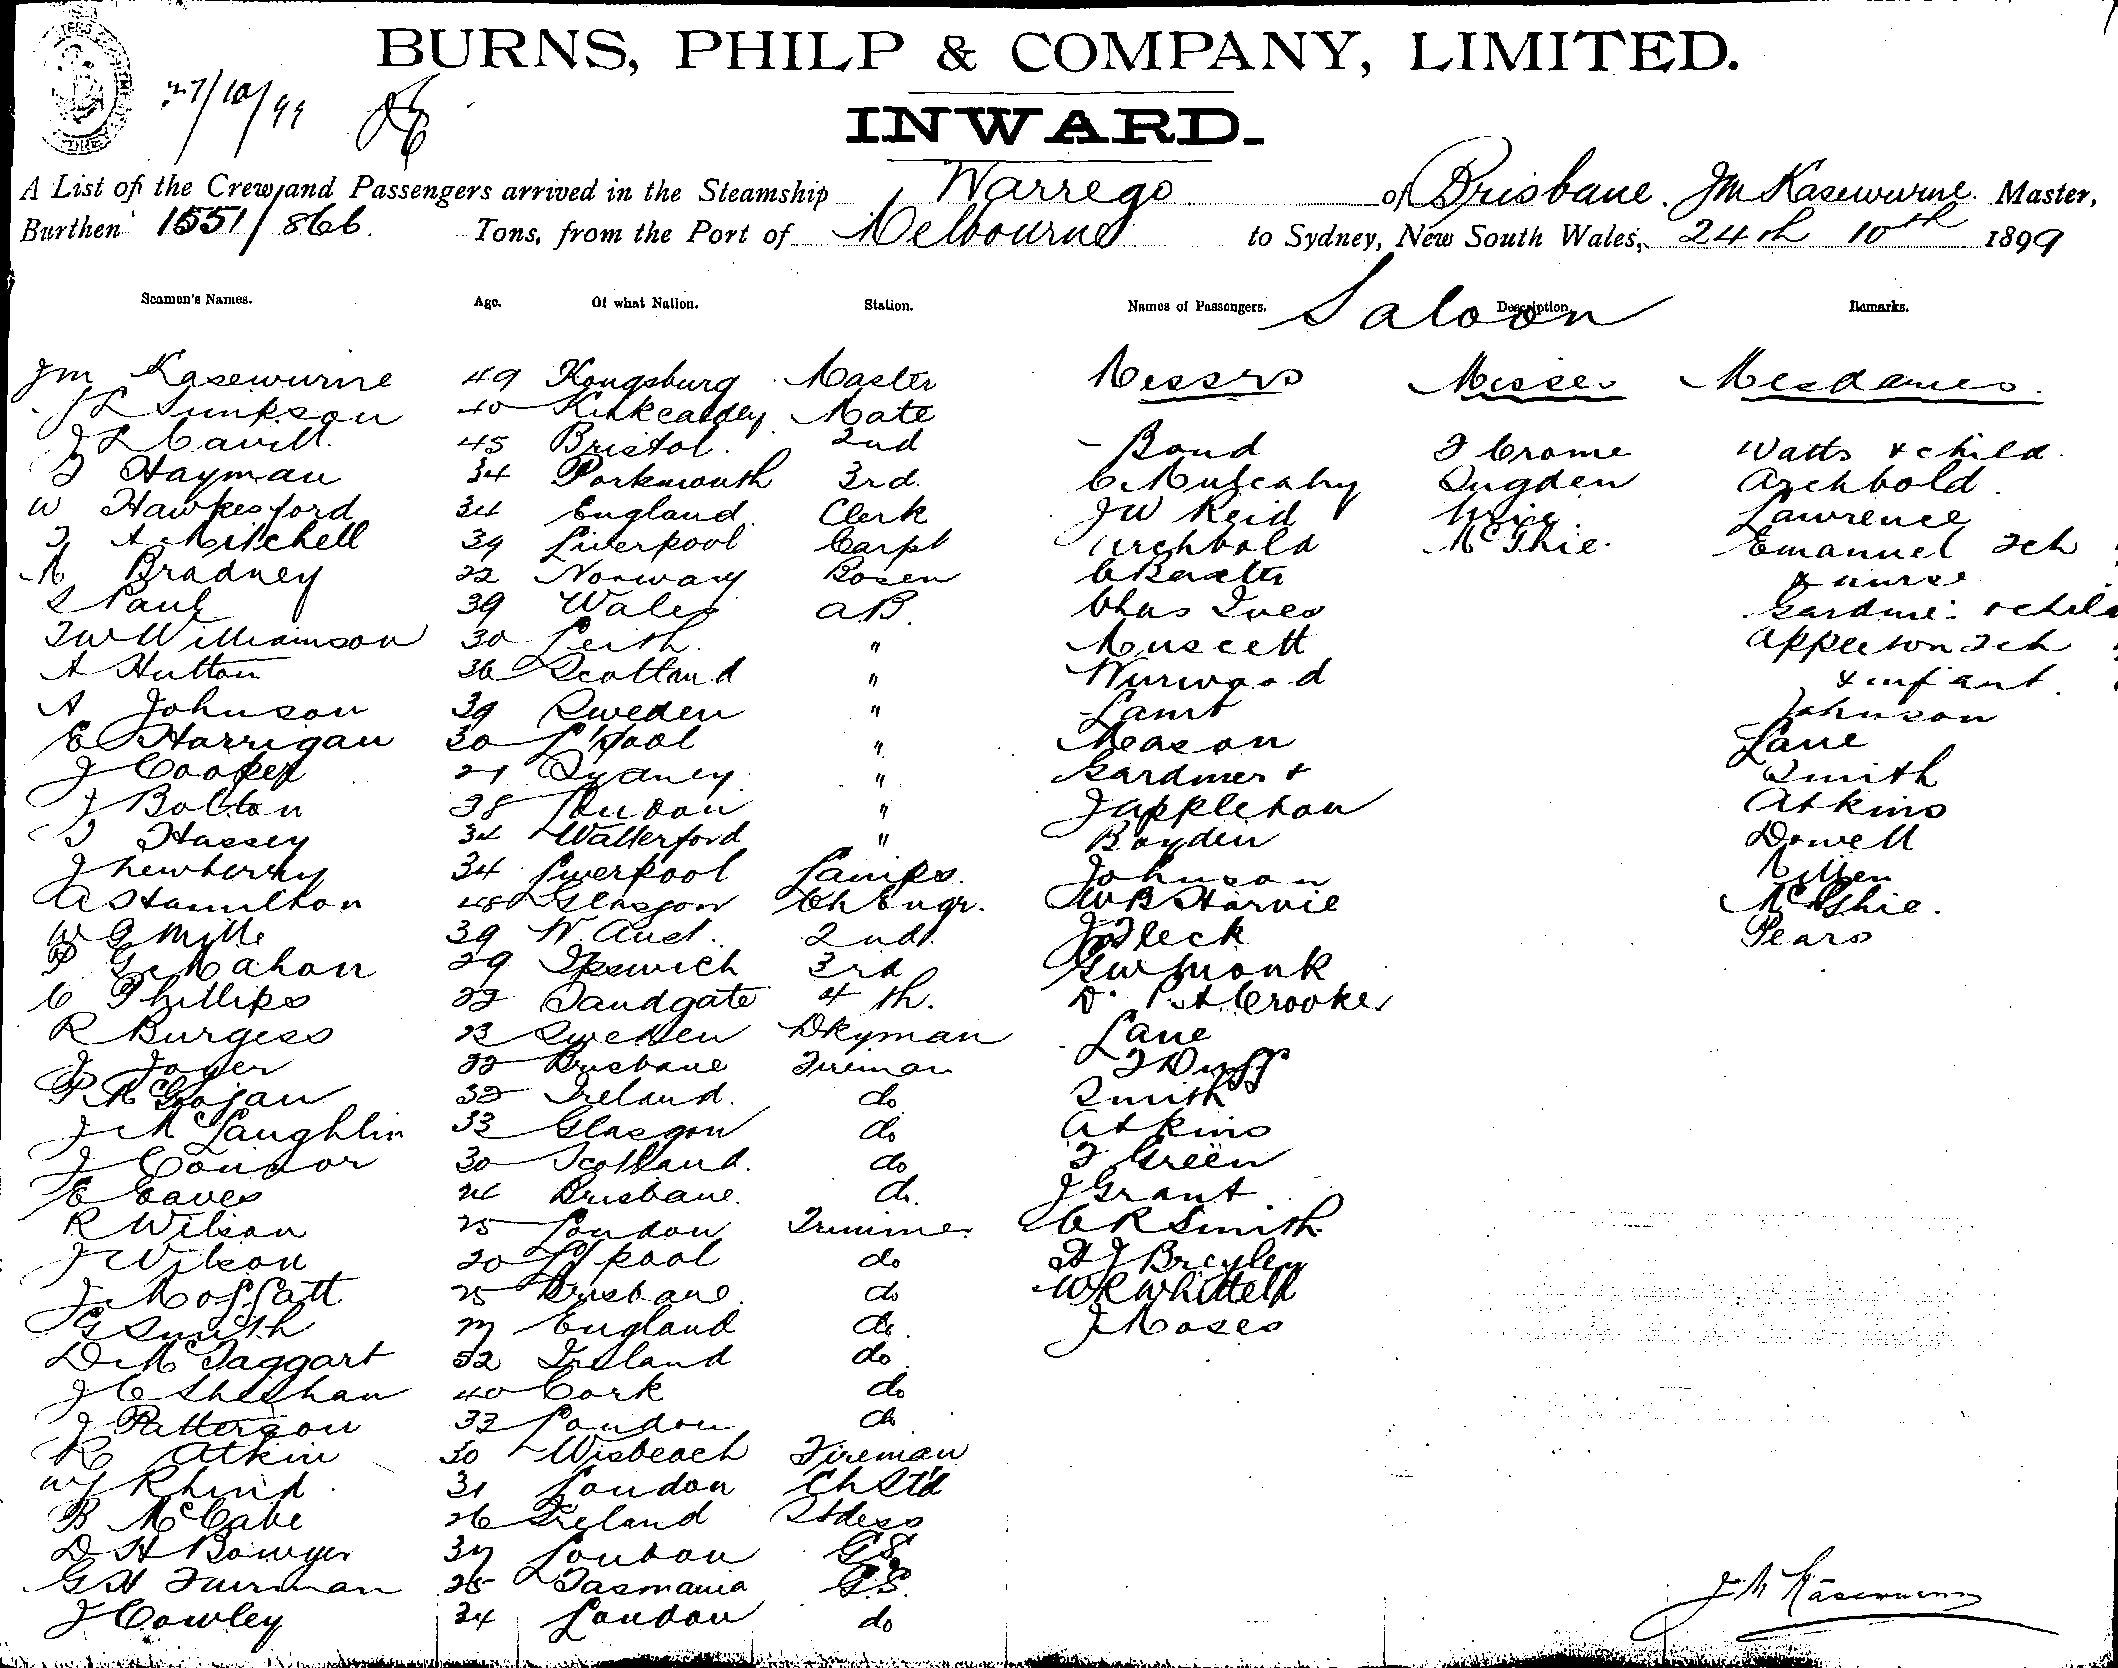 BURNS, PHILP & COMPANY, LIMITED.
27/10/99
INWARD.
A List of the Crew and Passengers arrived in the Steamship Warrego of Brisbane. JM Kasewurne. Master,
Burthen 1551/866. Tons, from the Port of Melbourne to Sydney, New South Wales, 24th 10th 1899
Seamen's Names. Age. Of what Nation. Station. Names of Passengers. Saloon Description. Remarks.
JM Kasewurne 49 Kongsburg Master Messrs Misses Mesdames.
40 Kirkcaldey Mate
J L Cavill. 45 Bristol. 2nd Bond F Crome Watts & child.
T Hayman 34 Portsmouth 3rd. C Mulcahy Sugden Archbold.
W Hawkesford 34 England. Clerk JW Reid Lawrence
T A Mitchell 39 Liverpool Carpt Archbold McGhie. Emanuel 2ch
M Bradney 22 Norway Bosen C Baxter & nurse
S Paul 39 Wales AB. Chas Ives Gardiner & child
TW Williamson 30 Leith. " Muscett Appleton 2ch
A Hutton 36 Scotland " Wurwood & infant.
A Johnson 39 Sweden " Lamb Johnson
E Harrigan 30 L'pool " Meason Lane
J Cooper 21 Sydney " Gardiner & Smith
J Bolton 38 London " J Appleton Atkins
T Hassey 34 Watterford " Boyden Dowell
J Newberry 34 Liverpool Lamps. Johnson Killen
A Hamilton 48 Glasgow Ch Engr. WB Harvie McGhie.
W G Mills 39 W. Aust. 2nd. J Fleck Pears
P G McMahon 29 Ipswich 3rd GW Monk
C Phillips 22 Sandgate 4th. Dr. P A Crooke
R Burgess 23 Sweden Dkyman Lane
J Joyer 22 Brisbane Fireman T Duff
P McGojan 32 Ireland. do Smith
J McLaughlin 33 Glasgow do Atkins
J Connor 30 Scotland. do F Green
E Eaves 24 Brisbane. do. J Grant
R Wilson 25 London Trimmer C R Smith
J Wilson 20 L'pool do H J Breyley
J Moffatt 25 Brisbane. do WR Whittell
G Smith 27 England do. J Moses
D McTaggart 32 Ireland do
J C Sheehan 40 Cork do
J Patterson 33 London do
R Atkin 30 Wisbeach Fireman
WJ Rhind. 31 London Ch Std
B McCabe 26 Ireland Stdess
D H Bowyer 37 London GS.
G H Furman 25 Tasmania G.S.
J Cowley 34 London do
J M Kasewurne